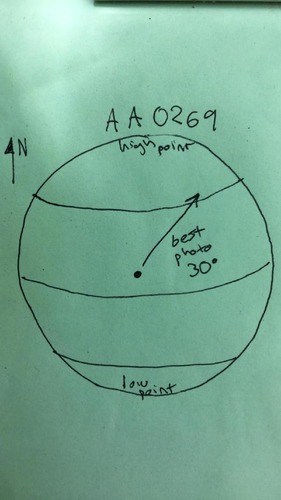 AA0269
high point
N
best
photo
30°
low
point